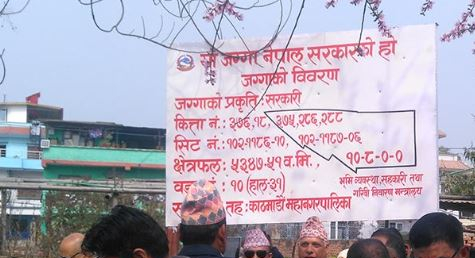 यो जग्गा नेपाल सरकारको हो
जग्गाको विवरण
जग्गाको प्रकृति: सरकारी
कित्ता नं.: ३७६,१८, ३७५,२८६,२८८
सिट नं.: १०२-११८६-१०, १०२-११८७-०६
क्षेत्रफल: ५३४७.५१ व.मि.
१०-८-०-०
वडा नं.: १० (हाल-३१)
भूमि व्यवस्था,सहकारी तथा
गरिबी निवारण मन्त्रालय
तह: काठमाडौं महानगरपालिका